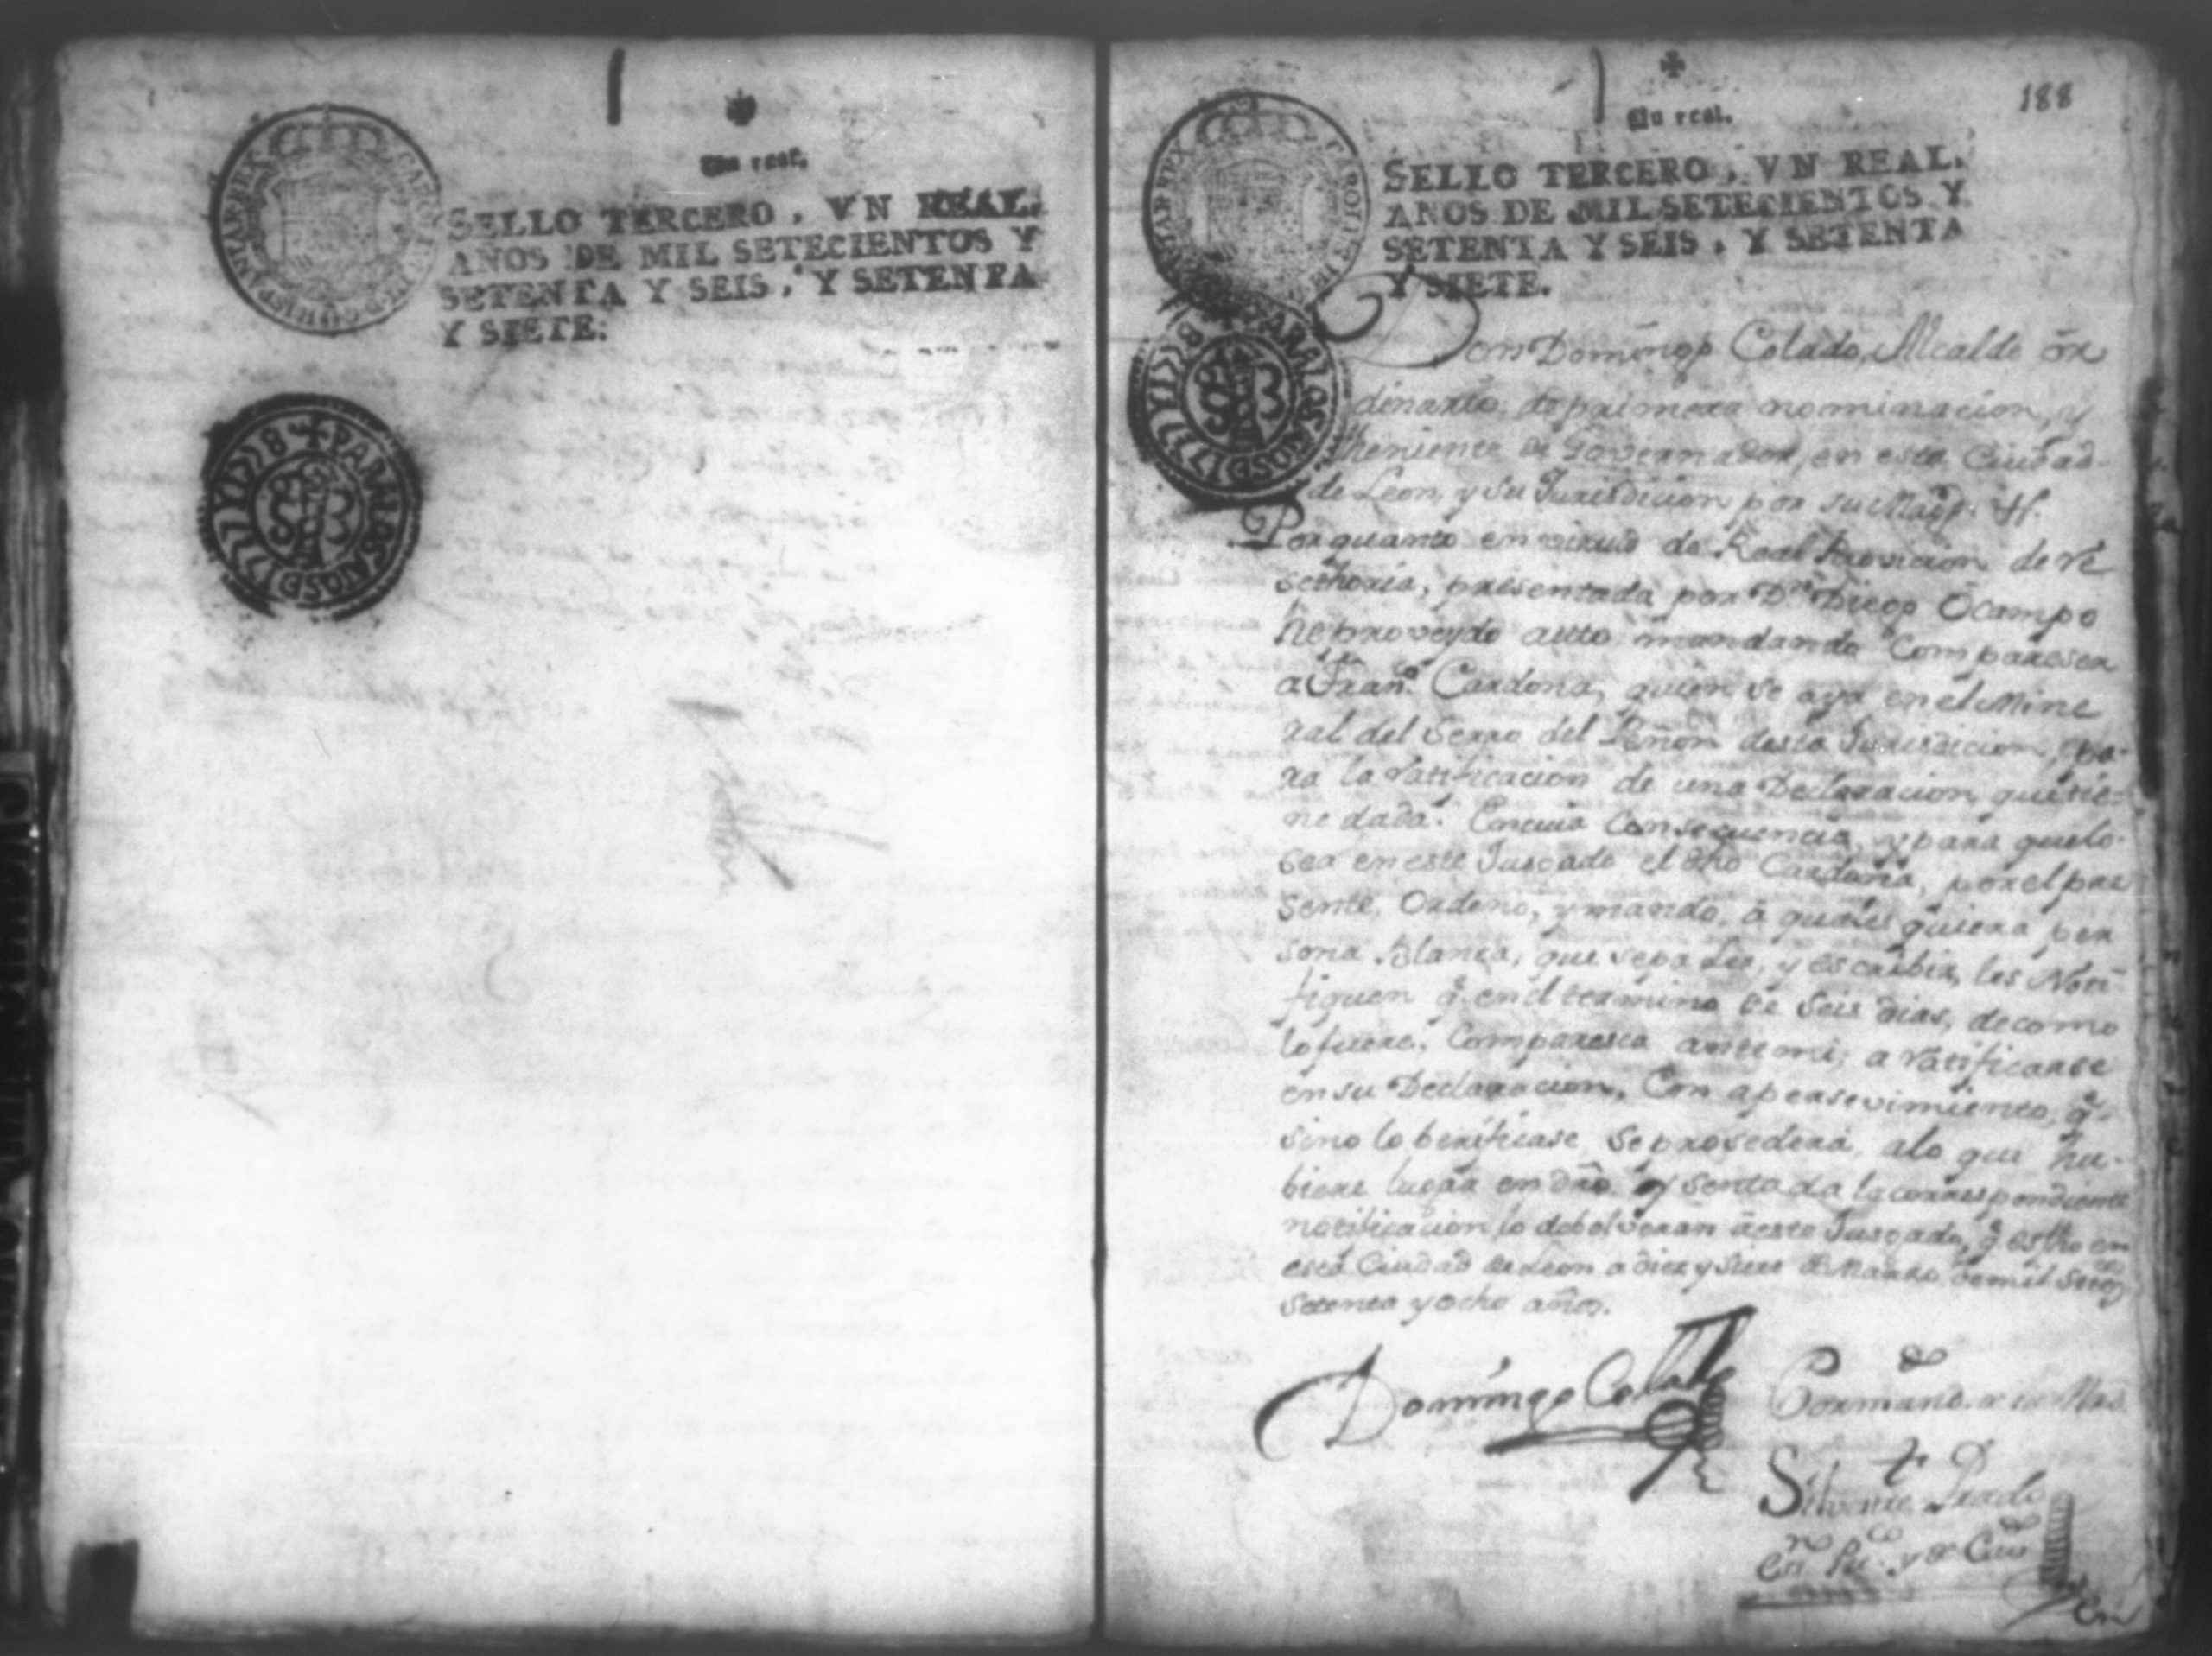 Un real.
SELLO TERCERO, VN REAL.
AÑOS DE MIL SETECIENTOS Y
SETENTA Y SEIS, Y SETENTA
Y SIETE.
PARA LOS AÑOS D 1777 Y 1778
188
Un real.
SELLO TERCERO, VN REAL.
AÑOS DE MIL SETECIENTOS Y
SETENTA Y SEIS, Y SETENTA
Y SIETE.
PARA LOS AÑOS D 1777 Y 1778
Don Domingo Colado, Alcalde or
dinario, de primera nominacion, y
theniente de Governador, en esta Ciudad
de Leon, y su Jurisdicion por su Magd. &.
Por quanto en virtud de Real Provicion de re
cethoria, presentada por Dn. Diego Ocampo
he proveydo auto mandando Comparescer
a Franco. Cardona, quien se aya en el Mine
ral del Serro del Peñon desta Jurisdicion, pa-
ra la ratificacion de una Declaracion que tie-
ne dada. En cuia Consequencia, y para que lo
sea en este Jusgado el dho Cardona, por el pre
sente, Ordeno, y mando, a quales quiera per
sona Blanca, que sepa Ler, y escribir, les Noti-
fiquen q. en el termino de seis dias, de como
lo fuere, Comparesca ante mi, a ratificarse
en su Declaracion, Con apersevimiento, q.
sino lo berificase, se prosederá, a lo que hu-
biere lugar en dro. y sentada la correspondiente
notificacion lo debolveran a este Jusgado, q. es fho en
esta Ciudad de Leon a diez y siete de Marzo de mil setecs.
setenta y ocho años.
Domingo Colado
Por mando. de su Md.
Silvre. Prado